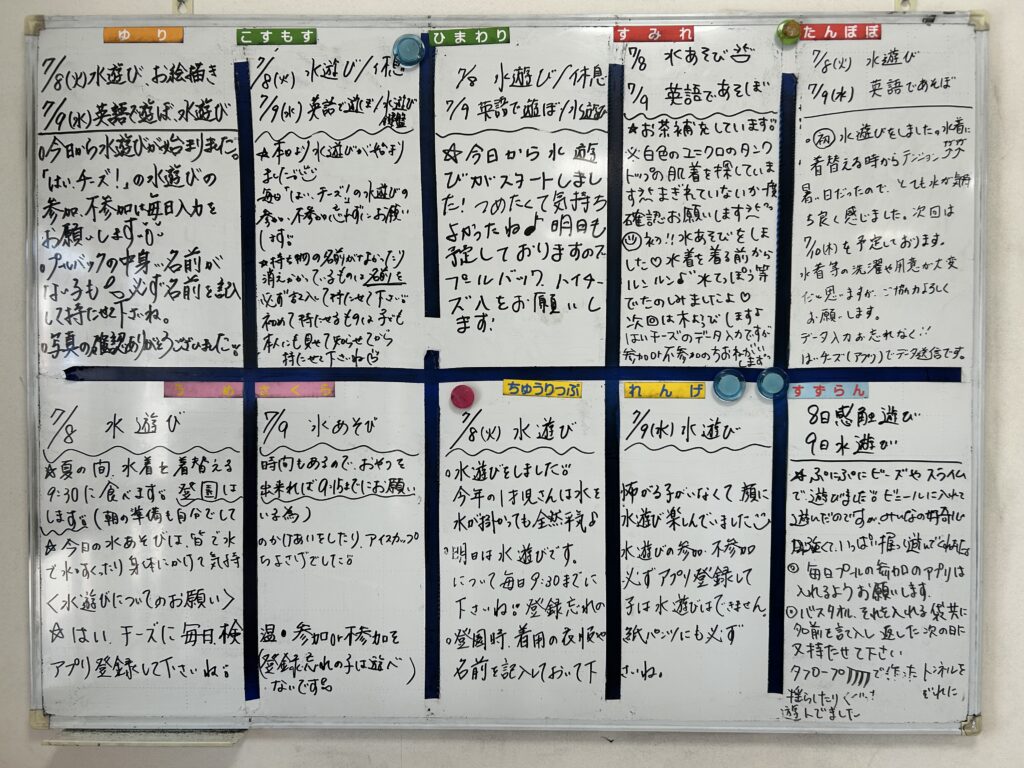 ゆり
7/8(火)水遊び、お絵描き
7/9(水)英語で遊ぼ、水遊び
今日から水遊びが始まりました。
「はい、チーズ!」の水遊びの
参加、不参加は毎日入力を
お願いします
プールバックの中身…名前が
ない子も 必ず名前を記入
して持たせて下さいね。
写真の確認ありがとうございました
こすもす
7/8(火) 水遊び/休息
7/9(水) 英語で遊ぼ/水遊び
☆本日より水遊びが始まり
ました
毎日「はい、チーズ!」の水遊びの
参加、不参加 必ず お願い
します
☆持ち物の名前がなかったり
消えかかっているものは名前を
必ず 記入して持たせて下さい
初めて持たせるものは子ども
本人にも見せて から
持たせて下さいね
ひまわり
7/8 水遊び/休息
7/9 英語で遊ぼ/水遊び
☆今日から水遊
びがスタートしまし
た!つめたくて気持ち
よかったね♪明日も
予定しておりますので
プールバック、ハイチー
ズ入をお願いし
ます!
すみれ
7/8 水あそび
7/9 英語であそぼ
☆お茶補充しています
※白色のユニクロのタンク
トップの肌着を探していま
す まぎれていないか一度
確認お願いします
初!!水あそびをしま
した♡水着を着る前から
ルンルン♪水てっぽう等
でたのしみましたよ♡
次回は木ようびしますよ
はいチーズのデータ入力ですが
参加or不参加の方おねがい
します
たんぽぽ
7/8(火) 水遊び
7/9(水) 英語であそぼ
㊗水遊びをしました。水着に
着替える時からテンション
暑い日だったので、とても水が気持
ち良く感じました。次回は
7/10(木)を予定しております。
水着等の洗濯や用意が大変
だと思いますが、ご協力よろしく
お願いします。
データ入力お忘れなく!!
はいチーズ(アプリ)でデータ送信です。
うめ さくら
7/8 水遊び
7/9 水あそび
☆夏の間、水着を着替える時間もあるので、おやつを
9:30に食べます 登園は出来れば9:15までにお願い
します(朝の準備も自分でしている為)
☆今日の水あそびは、皆で水のかけあいをしたり、アイスカップ
で水をすくったり身体にかけて気持ちよさげでした
〈水遊びについてのお願い〉
☆はい、チーズに毎日検温・参加or不参加を
アプリ登録して下さいね(登録忘れの子は遊べ
ないです)
ちゅうりっぷ れんげ
7/8(火) 水遊び
7/9(水) 水遊び
水遊びをしました
今年の1才児さんは水を怖がる子がいなくて顔に
水が掛かっても全然平気♪水遊び楽しんでいました
明日は水遊びです。水遊びの参加、不参加
について毎日9:30までに必ずアプリ登録して
下さいね 登録忘れの子は水遊びはできません。
登園時、着用の衣服や紙パンツにも必ず
名前を記入しておいて下さいね。
すずらん
8日感触遊び
9日水遊び
☆ぷにぷにビーズやスライム
で遊びました ビニールに入れて
遊んだのですが、みんなの好奇心
は強くて、いっぱい触って遊んでくれました
毎日プールの参加のアプリは
入れるようお願いします。
バスタオル、それを入れる袋共に
名前を記入し返した次の日に
又持たせて下さい
タフロープ で作ったトンネルを
揺らしたり それぞれに
遊んでました